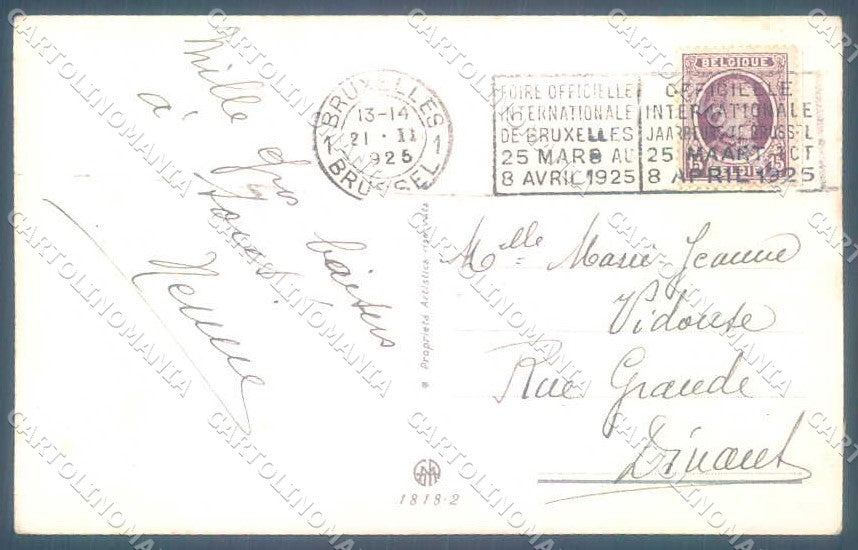 Mille gros baisers
à tous.
BRUXELLES
13-14
21 · II
1925
1 1
BRUSSEL
FOIRE OFFICIELLE
INTERNATIONALE
DE BRUXELLES
25 MARS AU
8 AVRIL 1925
OFFICIEELE
INTERNATIONALE
JAARBEURS
25 MAART TOT
8 APRIL 1925
BELGIQUE
15
Mlle Marie Jeanne
Rue Grande
Dinant
Proprietà Artistica riservata
1818-2
CARTOLINOMANIA